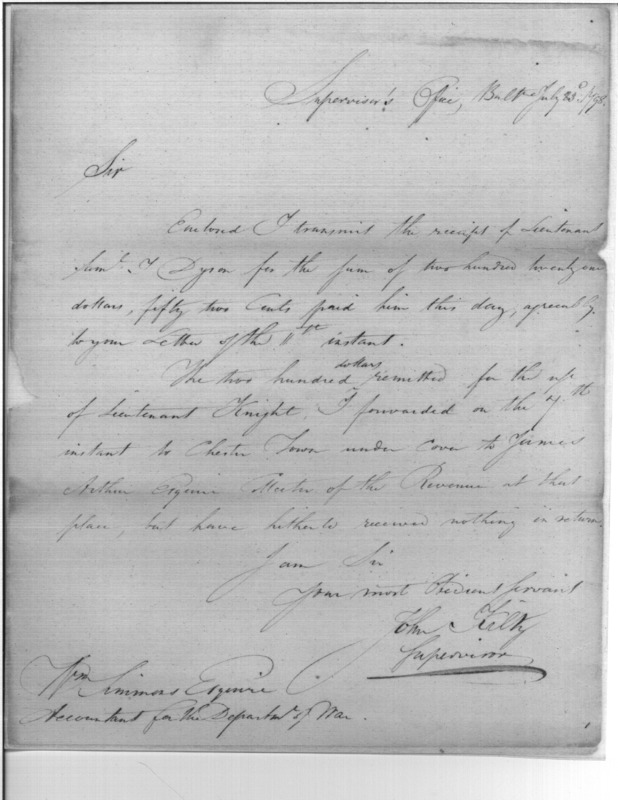 Supervisor's Office, Balt. July 23d 1798.
Sir
Enclosed I transmit the receipt of Lieutenant
Saml. T Dyson for the sum of two hundred twenty one
dollars, fifty two Cents paid him this day, agreeably
to your Letter of the 11th instant.
The two hundred dollars remitted for the use
of Lieutenant Knight, I forwarded on the 7th
instant to Chester Town under cover to James
Arthur Esquire of the Revenue at that
place, but have hitherto received nothing in return.
I am Sir
Your most Obedient Servant
John Kilty
Supervisor
Wm. Simmons Esquire
Accountant for the Departmt. of War.